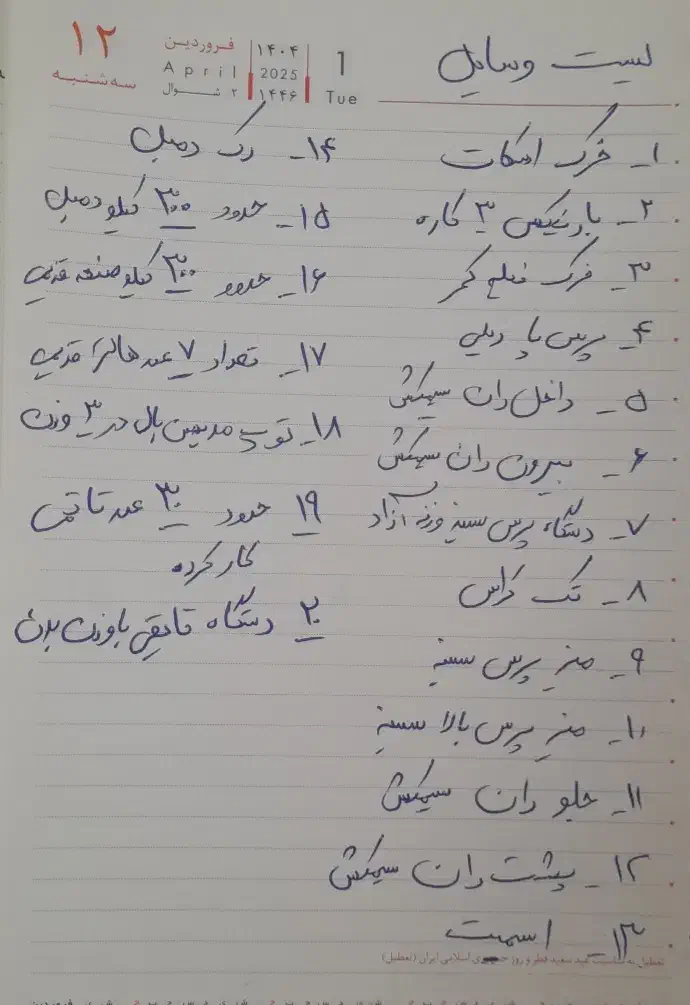 ۱۲
سه شنبه
فروردین
April
۲ شوال
۱۴۰۴
2025
۱۴۴۶
1
Tue
لیست وسایل
۱ـ فرک اسکات
۲ـ بارفیکس ۳ کاره
۳ـ فرک فلج کمر
۴ـ پرس پا
۵ـ داخل ران سیمکش
۶ـ بیرون ران سیمکش
۷ـ دستگاه پرس سینه وزنه آزاد
۸ـ تک کراس
۹ـ میز پرس سینه
۱۰ـ میز پرس بالا سینه
۱۱ـ جلو ران سیمکش
۱۲ـ پشت ران سیمکش
۱۳ـ اسمیت
۱۴ـ رک دمبل
۱۵ـ حدود ۳۰۰ کیلو دمبل
۱۶ـ حدود ۳۰۰ کیلو صفحه قدیمی
۱۷ـ تعداد ۷ عدد هالتر قدیمی
۱۸ـ توپ مدیسن بال در ۳ وزن
۱۹ حدود ۳۰ عدد تاتمی
کار کرده
۲۰ دستگاه قایقی با وزن بدن
تعطیل به مناسبت عید سعید فطر و روز جمهوری اسلامی ایران (تعطیل)